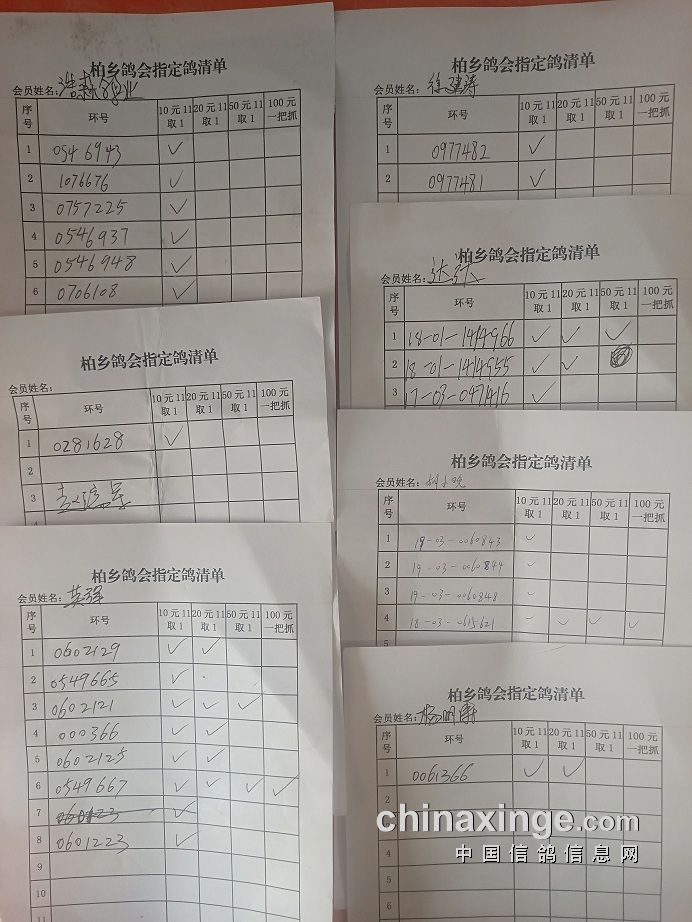 柏乡鸽会指定鸽清单
会员姓名：浩
序号 环号 10元11取1 20元11取1 50元11取1 100元一把抓
1 0546943 ✓
2 1076676 ✓
3 0757225 ✓
4 0546937 ✓
5 0546948 ✓
6 0706108 ✓
柏乡鸽会指定鸽清单
会员姓名：
序号 环号 10元11取1 20元11取1 50元11取1 100元一把抓
1 0281628 ✓
2
3
4
柏乡鸽会指定鸽清单
会员姓名：英强
序号 环号 10元11取1 20元11取1 50元11取1 100元一把抓
1 0602129 ✓ ✓
2 0549665 ✓
3 0602121 ✓ ✓ ✓
4 000366 ✓ ✓
5 0602125 ✓ ✓
6 0549667 ✓ ✓ ✓ ✓
7 ✓
8 0601223 ✓
9
10
11
柏乡鸽会指定鸽清单
会员姓名：徐建涛
序号 环号 10元11取1 20元11取1 50元11取1 100元一把抓
1 0977482 ✓
2 0977481 ✓
柏乡鸽会指定鸽清单
会员姓名：
序号 环号 10元11取1 20元11取1 50元11取1 100元一把抓
1 18-01-1414966 ✓ ✓ ✓
2 18-01-1414955 ✓ ✓
3 17-03-047416 ✓
柏乡鸽会指定鸽清单
会员姓名：
序号 环号 10元11取1 20元11取1 50元11取1 100元一把抓
1 19-03-0060843 ✓
2 19-03-0060844 ✓
3 19-03-0060848 ✓
4 18-03-0615621 ✓ ✓ ✓ ✓
5
柏乡鸽会指定鸽清单
会员姓名：杨明
序号 环号 10元11取1 20元11取1 50元11取1 100元一把抓
1 0061366 ✓ ✓
2
3
4
5
6
chinaxinge.com
中国信鸽信息网